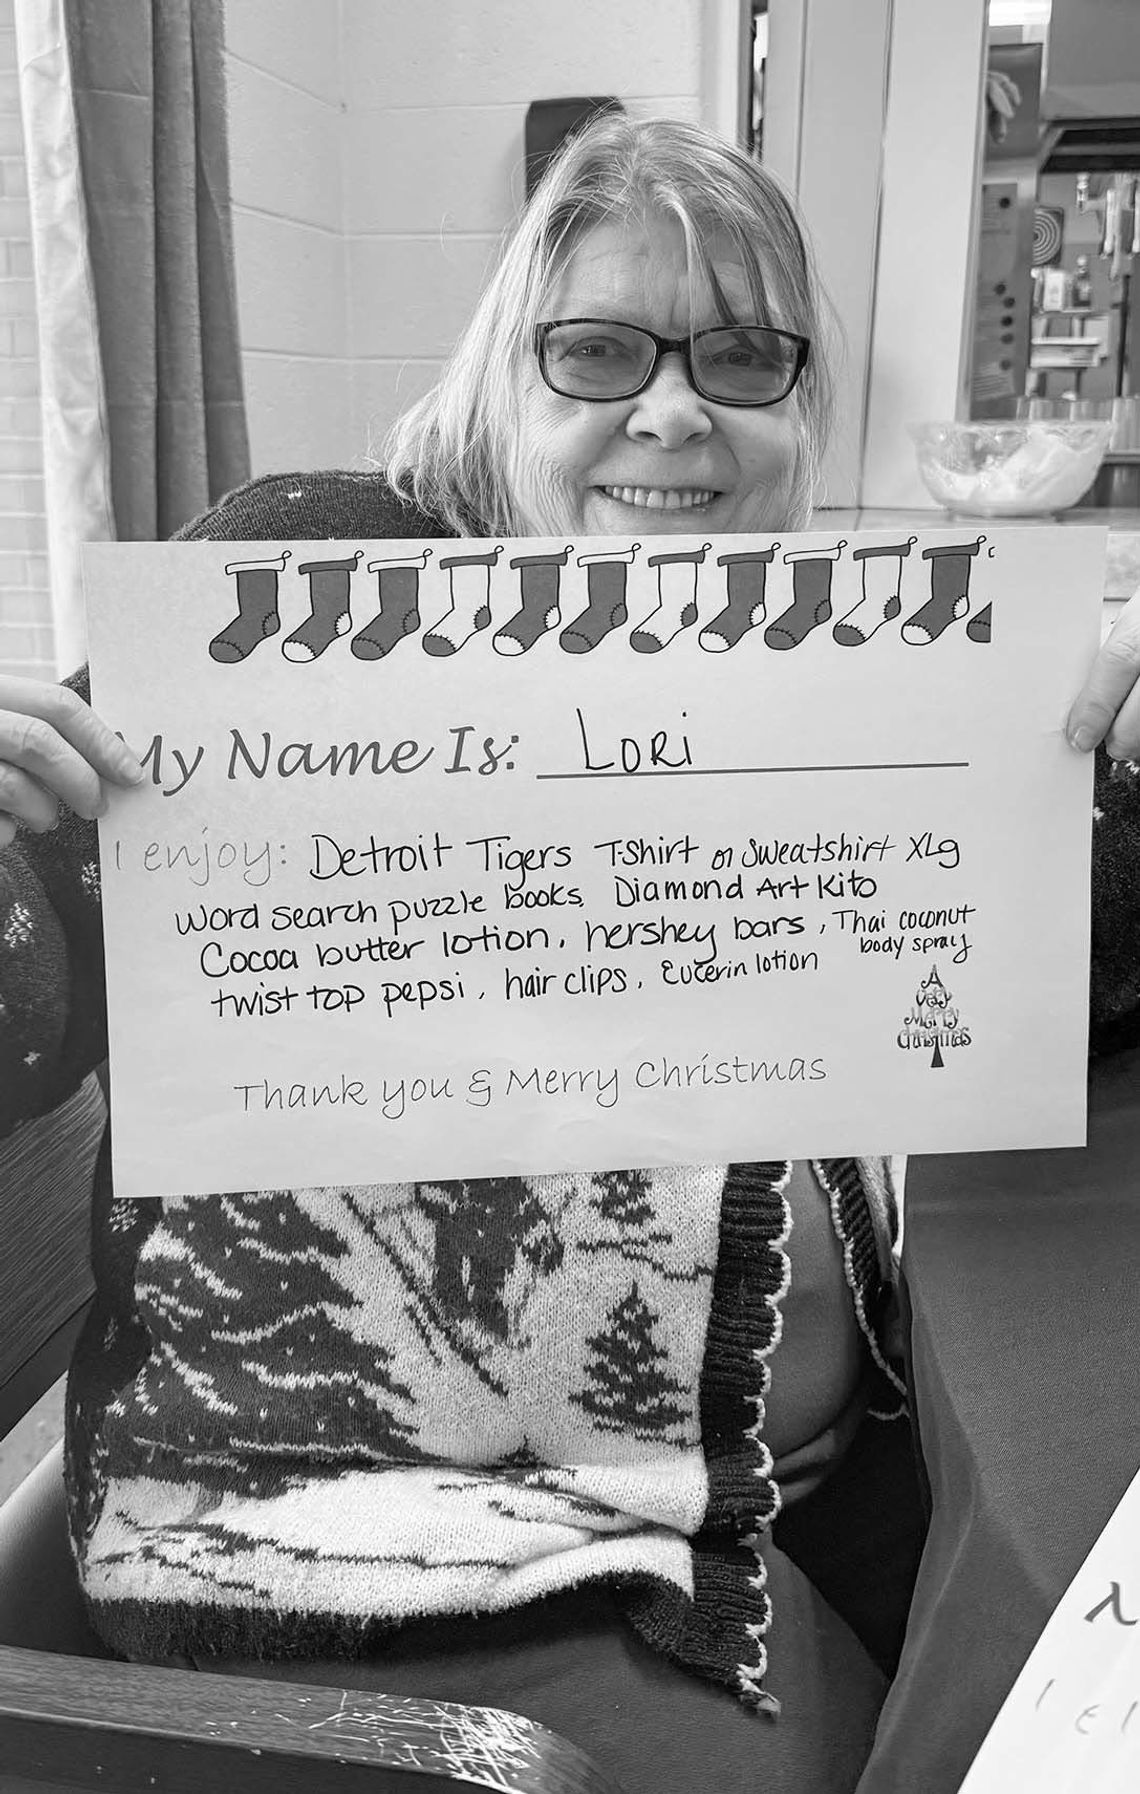 My Name Is: LORi
I enjoy: Detroit Tigers T-Shirt or Sweatshirt XLg
Word search puzzle books, Diamond Art Kits
Cocoa butter lotion, hershey bars, Thai coconut
body spray
twist top pepsi, hair clips, Eucerin lotion
A
Very
Merry
Christmas
Thank you & Merry Christmas